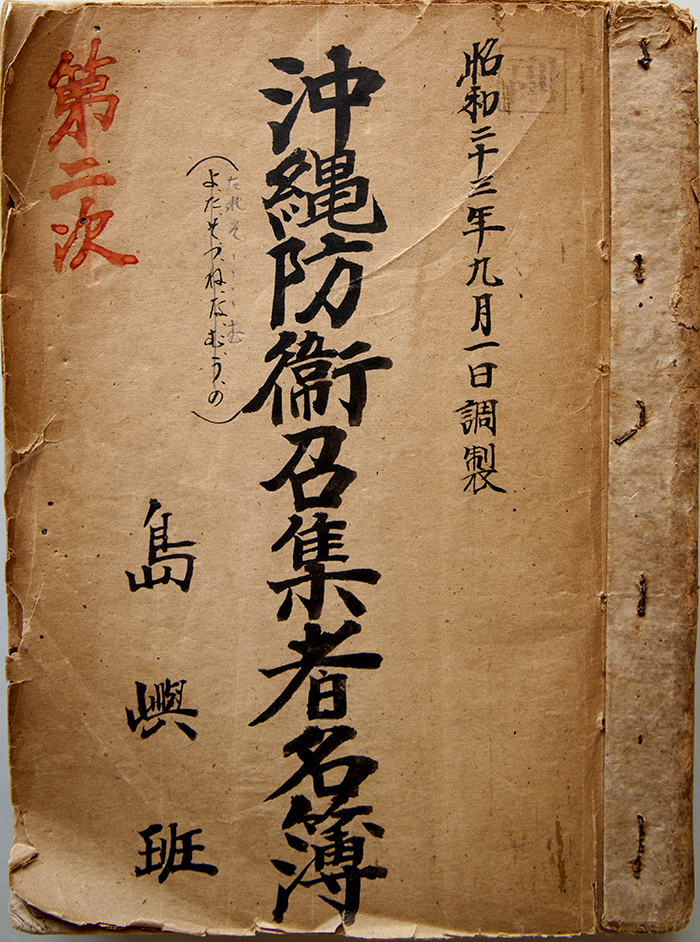 昭和二十三年九月一日調製
沖縄防衛召集者名簿
たれそ
む
(よたれそつねなむうの)
第二次
島嶼班